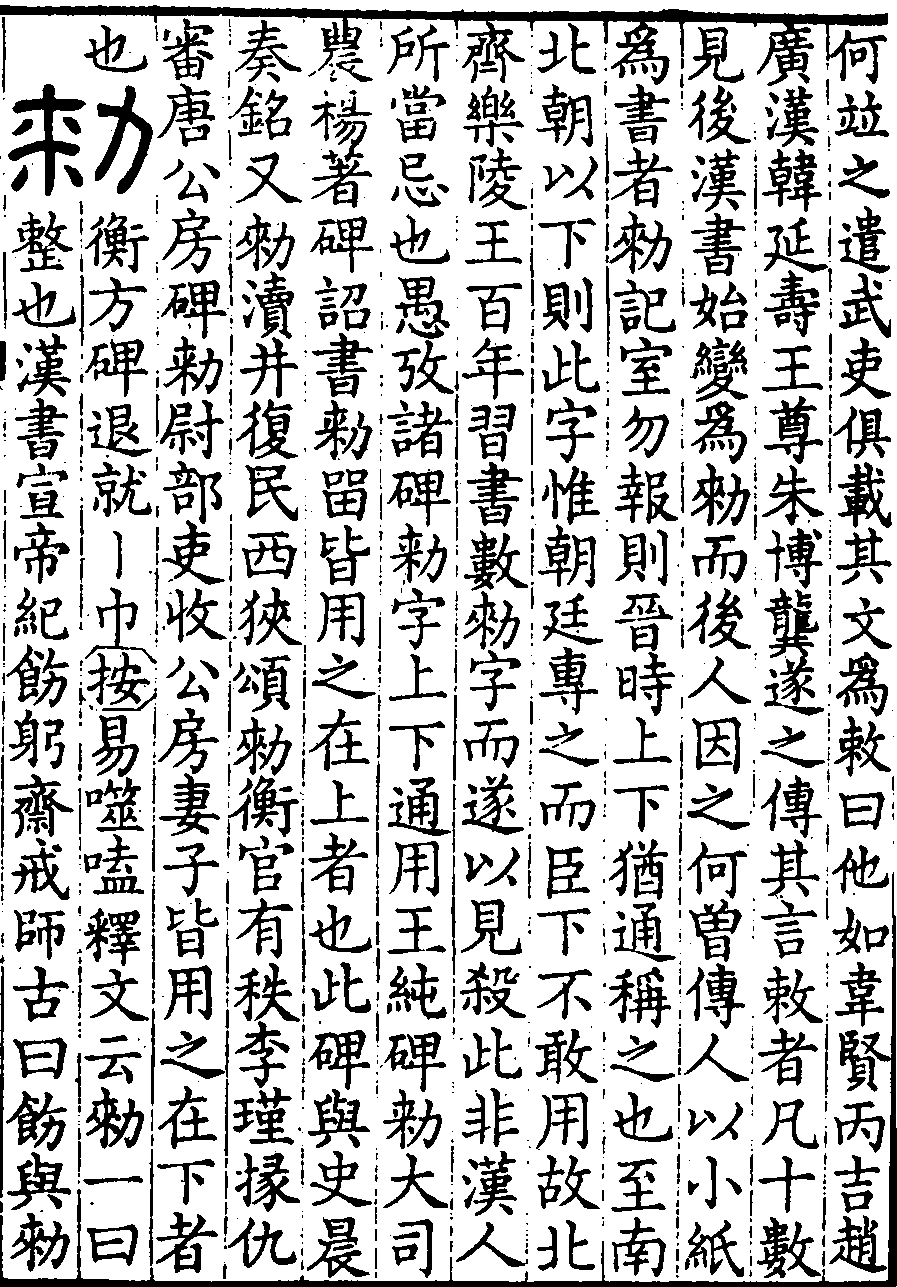 何竝之遣武吏俱載其文爲敕曰他如韋賢丙吉趙
廣漢韓延壽王尊朱博龔遂之傳其言敕者凡十數
見後漢書始變爲勑而後人因之何曽傳人以小紙
爲書者勑記室勿報則晉時上下猶通稱之也至南
北朝以下則此字惟朝廷專之而臣下不敢用故北
齊樂陵王百年習書數勑字而遂以見殺此非漢人
所當忌也愚攷諸碑勑字上下通用王純碑勑大司
農楊著碑詔書勑留皆用之在上者也此碑與史晨
奏銘又勑瀆井復民西狹頌勑衡官有秩李瑾掾仇
審唐公房碑勑尉部吏收公房妻子皆用之在下者
也勑衡方碑退就丨巾按易噬嗑釋文云勑一曰
整也漢書宣帝紀飭躬齋戒師古曰飭與勑